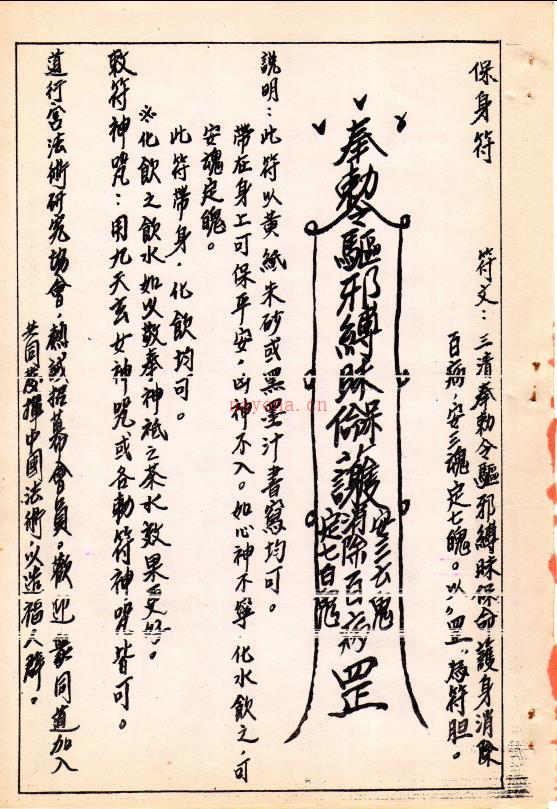 保身符
符文：三清奉勅令驅邪縛昧保命護身消除
百病，安三魂定七魄。以，罡，為符胆。
奉勅令驅邪縛昧保命護
安三魂
消除百病
定七魄
罡
說明：此符以黃紙朱砂或黑墨汁書寫均可。
帶在身上可保平安，凶神不入。如心神不寧，化水飲之，可
安魂定魄。
此符帶身，化飲均可。
※化飲之飲水如以敬奉神祇之茶水效果更好。
敕符神咒：用九天玄女神咒或各勅符神咒皆可。
道行宮法術研究協會，熱誠招募會員，歡迎眾同道加入
共同發揮中國法術，以造福人群。
nayona.cn